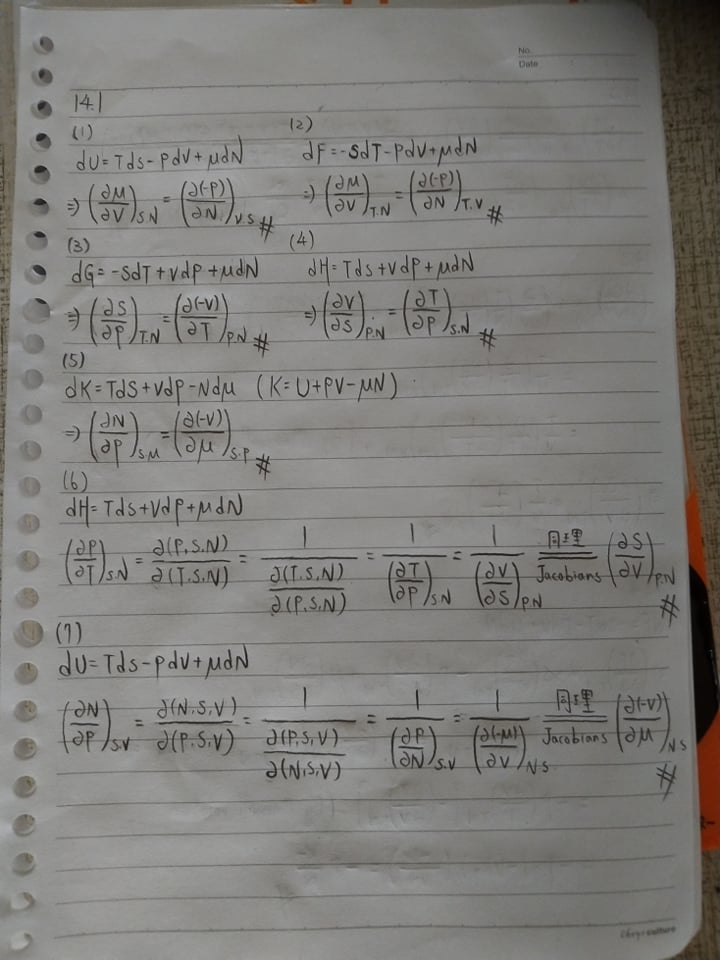 No.
Date
14.1
(1) (2)
dU = Tds - pdV + μdN dF = -SdT - pdV + μdN
⇒ (∂μ/∂V)_{S.N} = (∂(-p)/∂N)_{V.S} # ⇒ (∂μ/∂V)_{T.N} = (∂(-p)/∂N)_{T.V} #
(3) (4)
dG = -SdT + Vdp + μdN dH = Tds + Vdp + μdN
⇒ (∂S/∂p)_{T.N} = (∂(-V)/∂T)_{P.N} # ⇒ (∂V/∂S)_{P.N} = (∂T/∂p)_{S.N} #
(5)
dK = TdS + Vdp - Ndμ (K = U + PV - μN)
⇒ (∂N/∂p)_{S.μ} = (∂(-V)/∂μ)_{S.P} #
(6)
dH = Tds + Vdp + μdN
(∂P/∂T)_{S.N} = ∂(P.S.N)/∂(T.S.N) = 1/(∂(T.S.N)/∂(P.S.N)) = 1/(∂T/∂p)_{S.N} = 1/(∂V/∂S)_{P.N} 同理 Jacobians (∂S/∂V)_{P.N} #
(7)
dU = Tds - pdV + μdN
(∂N/∂p)_{S.V} = ∂(N.S.V)/∂(P.S.V) = 1/(∂(P.S.V)/∂(N.S.V)) = 1/(∂P/∂N)_{S.V} = 1/(∂(-μ)/∂V)_{N.S} 同理 Jacobians (∂(-V)/∂μ)_{N.S} #